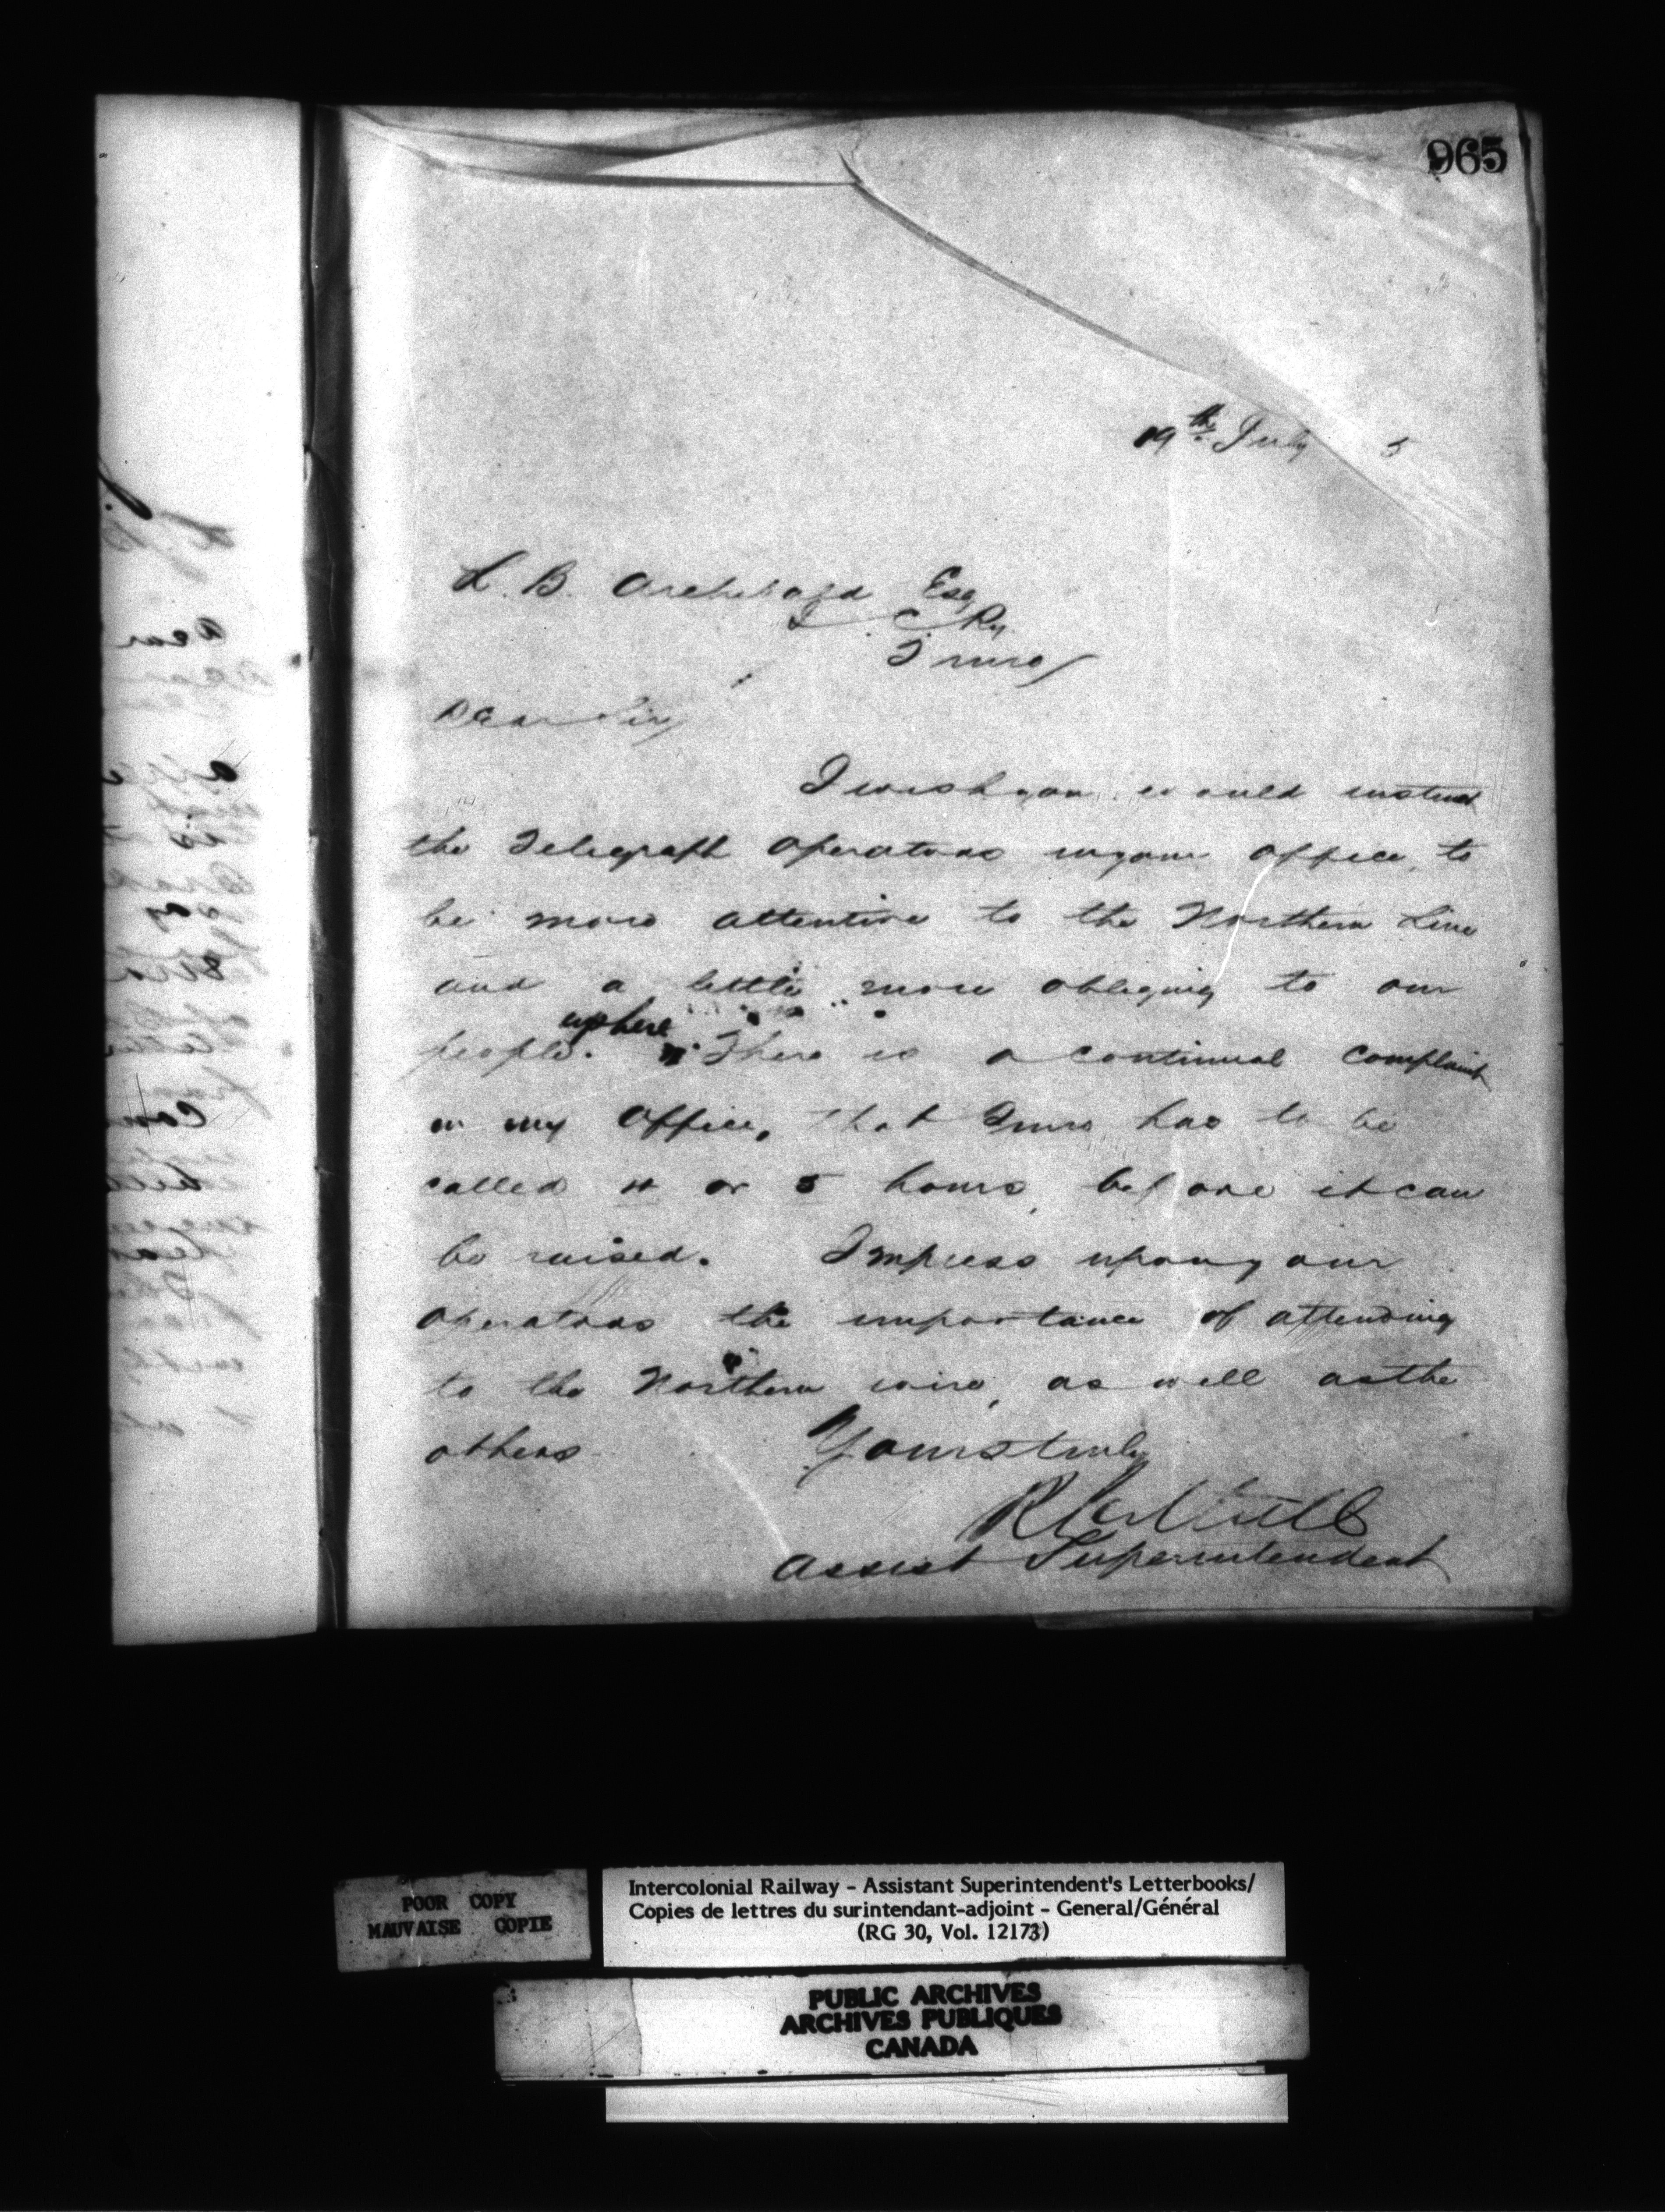 965
19th July 5
L. B. Archibald Esq
I. C. Ry.
Truro
Dear Sir
I wish you would instruct
the Telegraph Operators in your Office, to
be more attentive to the Northern Line
and a little more obliging to our
up here
people. There is a continual complaint
in my Office, that Truro has to be
called 4 or 5 hours, before it can
be raised. Impress upon your
Operators the importance of attending
to the Northern wire, as well as the
others
Yours truly
Assist Superintendent
POOR COPY
MAUVAISE COPIE
Intercolonial Railway - Assistant Superintendent's Letterbooks/
Copies de lettres du surintendant-adjoint - General/Général
(RG 30, Vol. 12173)
PUBLIC ARCHIVES
ARCHIVES PUBLIQUES
CANADA